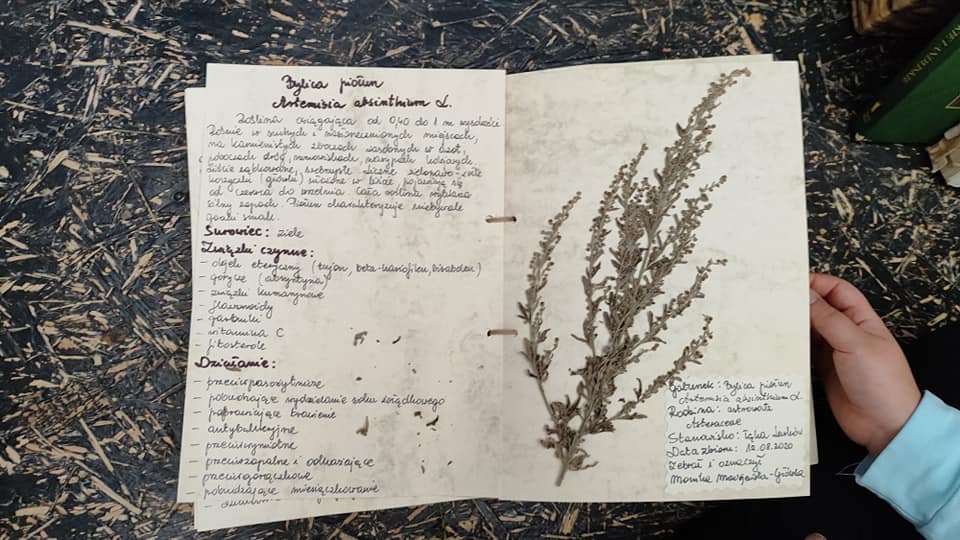 Bylica piołun
Artemisia absinthium L.
Roślina osiągająca od 0,40 do 1 m wysokości
Rośnie w suchych i nasłonecznionych miejscach,
na kamienistych zboczach zasobnych w azot,
poboczach dróg,
Liście ząbkowane, srebrzyste liczne zielonawo-żółte
koszyczki (główki) pojawiają się
od czerwca do września. Cała roślina wydziela
silny zapach. Piołun charakteryzuje niebywale
gorzki smak.
Surowiec: ziele
Związki czynne:
- olejek eteryczny (tujon, beta-kariofilen, bisabolen)
- gorycze (absyntyna)
- związki kumarynowe
- flawonoidy
- garbniki
- witamina C
- fitosterole
Działanie:
- przeciwpasożytnicze
- pobudzające wydzielanie soku żołądkowego
- poprawiające trawienie
- antybakteryjne
- przeciwzapalne i odkażające
- przeciwgorączkowe
- pobudzające miesiączkowanie
Gatunek: Bylica piołun
Artemisia absinthium L.
Rodzina: astrowate
Asteraceae
Stanowisko: Łąka
Data zbioru: 12.08.2020
Zebrał i oznaczył
Monika